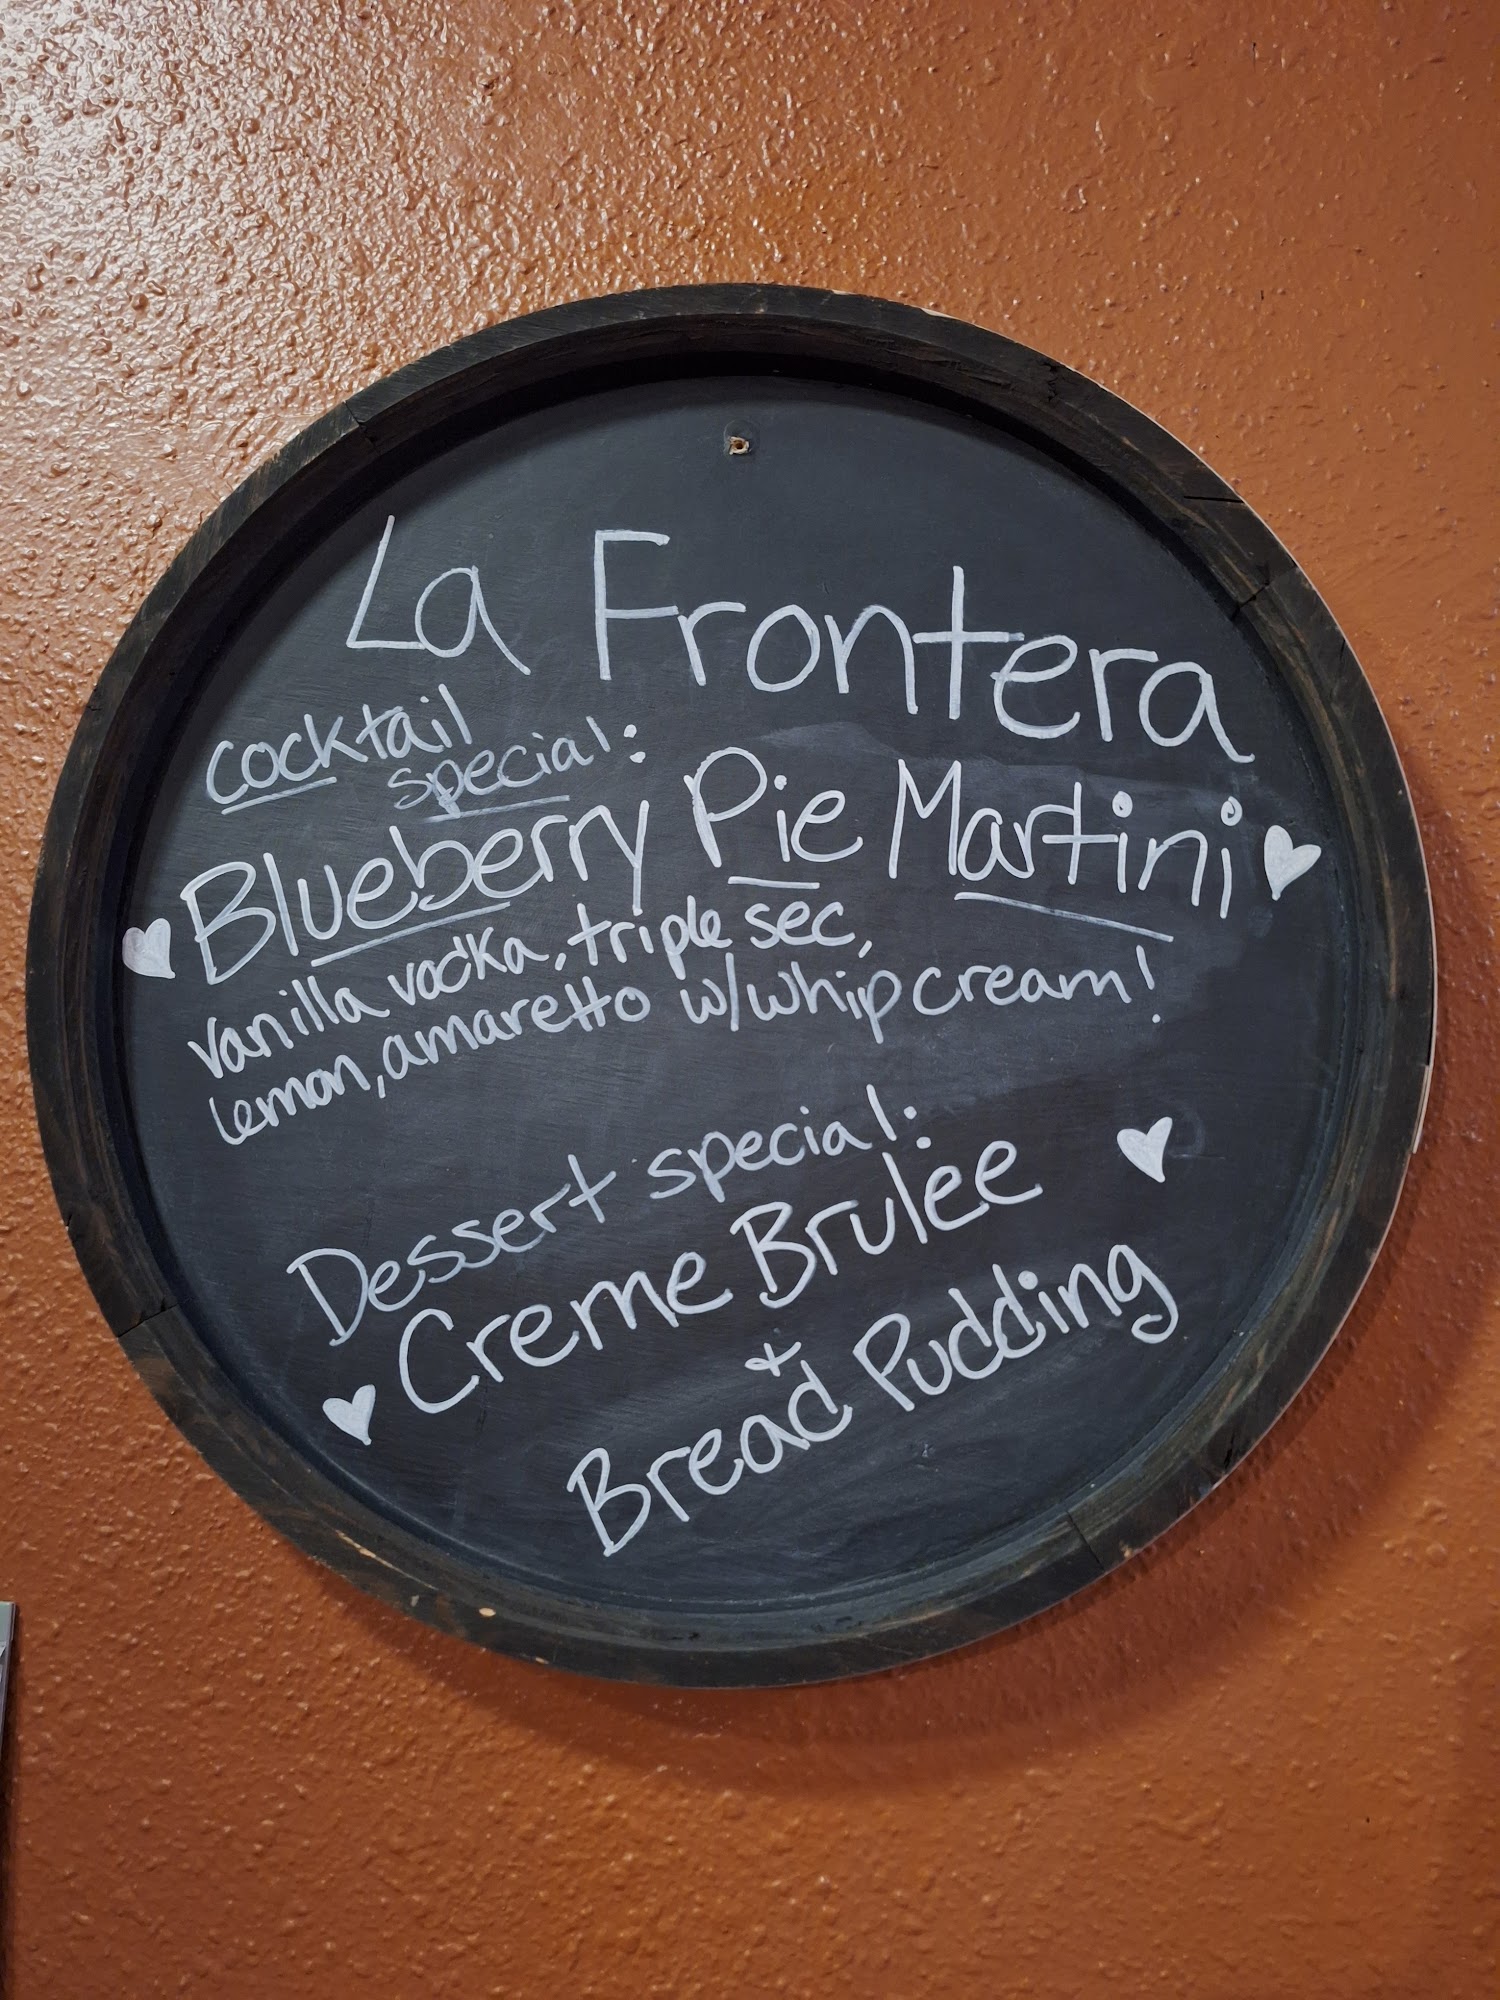 La Frontera
cocktail
special:
Blueberry Pie Martini
vanilla vodka, triple sec,
lemon, amaretto w/whip cream!
Dessert special:
Creme Brulee
+
Bread Pudding